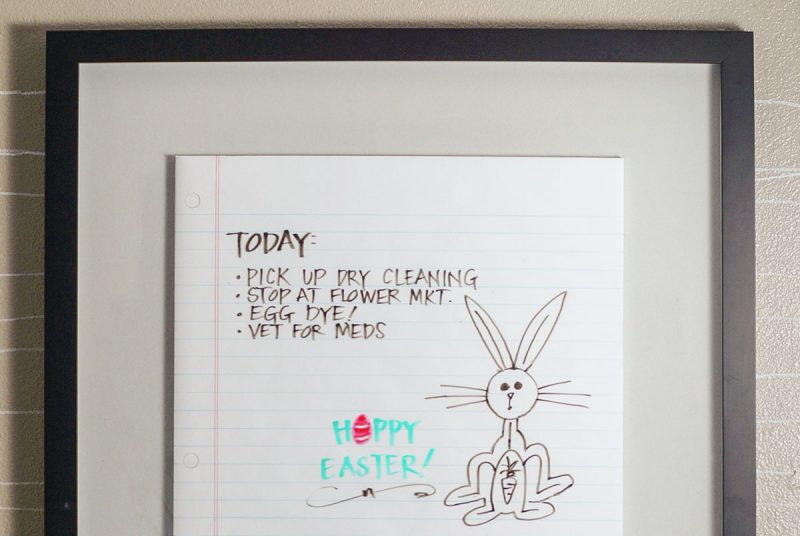 TODAY:
• PICK UP DRY CLEANING
• STOP AT FLOWER MKT.
• EGG DYE!
• VET FOR MEDS
HAPPY
EASTER!